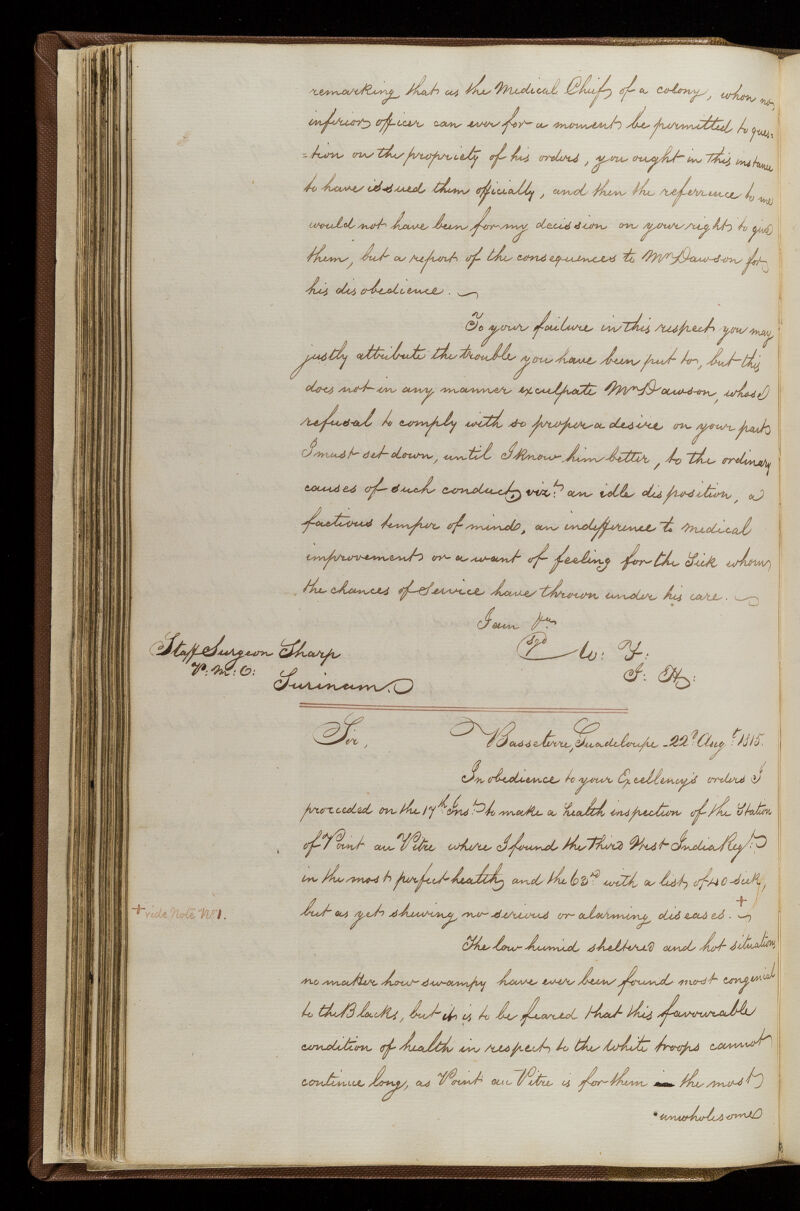 remarking that as the Medical Chief of a colony, whom no
inferior officer can ever for a moment be permitted to ques=
=tion on the propriety of his orders, you ought in this instance
to have issued them officially, and then the referrence to me
would not have been for my decission on your right to give
them, but a report of the consequences to Mr Dawson for
his disobedience.
To your failure in this respect you may
justly attribute the trouble you have been put to, but this
does not in any manner exculpate Mr Dawson, whose
refusal to comply with so proper a desire on your part
I must set down, until I know him better, to the ordinary
causes of such conduct, vizt. an idle disposition, a
factious temper of mind, an indifference to medical
improvement or a want of feeling for the Sick whom
the chances of Service have thrown under his care.
I am
Sgd W: F:
I: H:
Staff Surgeon Sharp
P: M: O:
Surinam.
Sir, Basseterre, Guadeloupe - 22d Augt. 1815.
In obedience to your Excellency's orders I
proceeded on the 17th Inst. to make a health inspection of the Station
of Point au Pitre where I found the Third West India Regt.
in the most perfect health and the 63rd with a list of 40 sick,
+ vide Note No 1.
but as yet shewing no serious or alarming diseases. +
The low humid sheltered and hot situation
no matter how swampy have ever been found most congenial
to the Blacks, but it is to be feared that this favourable
condition of health in respect to the White troops cannot
continue long, as Point au Pitre is for them the most
unwholesome